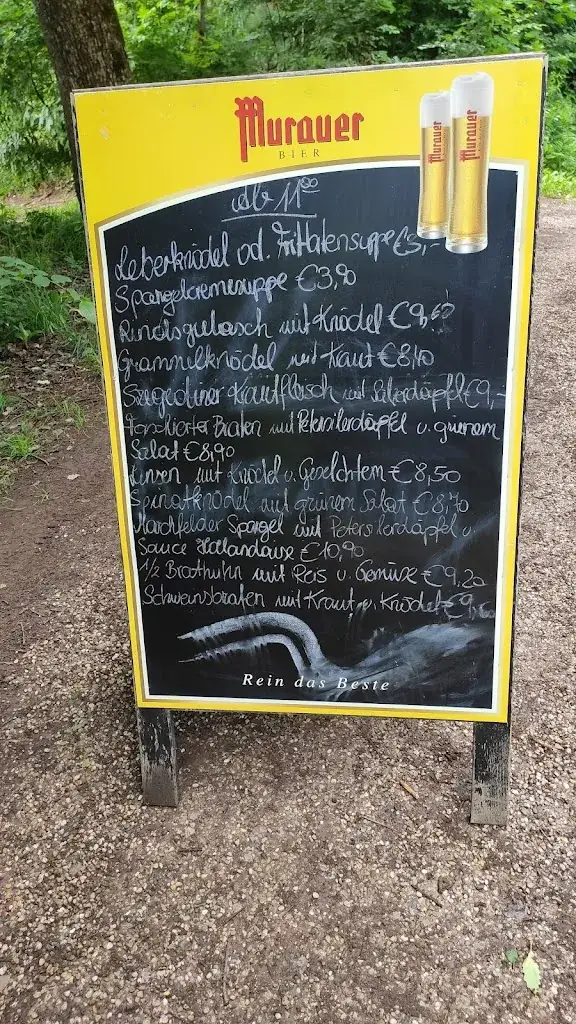 Murauer
BIER
Murauer
Murauer
Ab 11⁰⁰
Leberknödel od. Frittatensuppe €3,-
Spargelcremesuppe €3,90
Rindsgulasch mit Knödel €9,60
Grammelknödel mit Kraut €8,10
Szegediner Krautfleisch mit Salzerdäpfl €9,-
Faschierter Braten mit Petersilerdäpfel u. grünem
Salat €8,90
Linsen mit Knödel u. Geselchtem €8,50
Spinatknödel auf grünem Salat €8,70
Marchfelder Spargel mit Petersilerdäpfel u.
Sauce Hollandaise €10,90
1/2 Brathuhn mit Reis u. Gemüse €9,20
Schweinsbraten mit Kraut u. Knödel
Rein das Beste